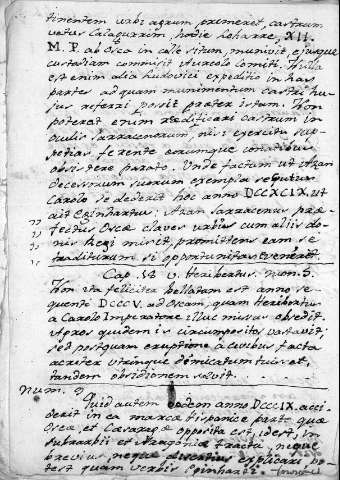 tinentem urbi agrum premeret, castrum
vetus Calagurrim, hodie Loharre, XII.
M. P. ab Osca in colle situm, munivit, ejusque
custodiam commisit Aureolo Comiti. Nulla
est enim alia Ludovici expeditio in has
partes ad quam munimentum castri hu
jus referri possit præter istam. Non
poterat enim reædificari castrum in
oculis Sarracenorum, nisi exercitu sup
petias ferente eorumque conatibus
obsistere parato. Unde factum ut Azan
decessorum suorum exempla sequutus
Carolo se dederit hoc anno DCCXCIX, ut
ait Eginhartus: Azan Sarracenus præ
fectus Oscæ claves urbis cum aliis do
nis Regi misit, promittens eam se
traditurum si opportunitas eveneret.
Cap. 18 v. Heribertus. num. 5.
Non ita feliciter bellatum est anno se
quenti DCCCV. ad Oscam, quam Heribertus
a Carolo Imperatore illuc missus obsedit.
Agros quidem is circumpositos vastavit;
sed postquam eruptione a civibus facta
acriter utrinque dimicatum fuisset,
tandem obsidionem solvit.
Num. 9
Quid autem eodem anno DCCCIX. acci
derit in ea marcæ Hispanicæ parte quæ
Oscæ, et Cæsaraugæ opposita est, idest, in
Subrarbii et Aragoniæ tractu, neque
brevius, neque disertius explicari po
test quam verbis Eginhardi.